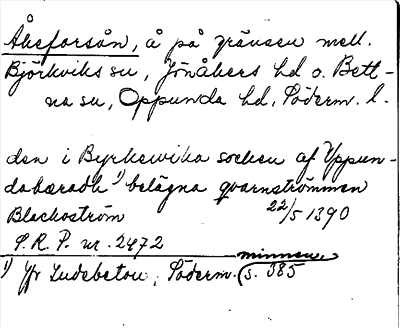 Åkeforsån, å på gränsen mell.
Björkviks sn, Jönåkers hd o. Bett-
na sn, Oppunda hd, Söderm. l.
den i Byrkewika socken af Yppun-
dahæradh 1) belägna qvarnströmmen
Blackoström 22/5 1390
S.R.P. nr. 2472
1) Jfr Ludebeton, Söderm. minnen, s. 385